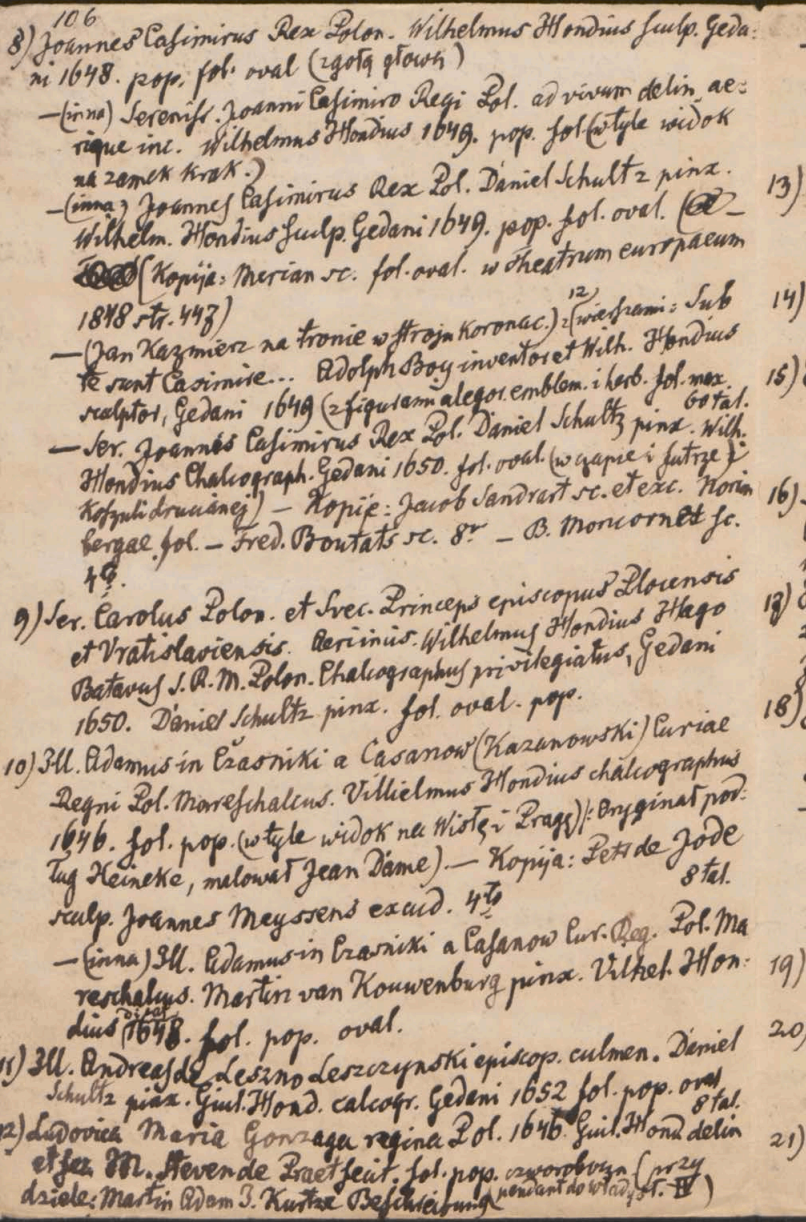 106
8) Joannes Casimirus Rex Polon. Wilhelmus Hondius sculp. Geda:
ni 1648. pop. fol. oval (z gołą głową)
—(inna) Sereniss. Joanni Casimiro Regi Pol. ad vivum delin. ae:
rique inc. Wilhelmus Hondius 1649. pop. fol (w tyle widok
na zamek Krak.)
—(inna) Joannes Casimirus Rex Pol. Daniel Schultz pinx.
Wilhelm. Hondius sculp. Gedani 1649. pop. fol. oval.
(Kopija: Merian sc. fol. oval. w Theatrum europaeum
1848 str. 447)
—(Jan Kazmierz na tronie w stroju Koronac.) : (12 wierszami: Sub
te sunt Casimire... Adolph Boy inventor et Wilh. Hondius
sculptor, Gedani 1649 (z figurami alegor. emblem. i herb. fol. max.
60 tal.
— Ser. Joannes Casimirus Rex Pol. Daniel Schultz pinx. Wilh.
Hondius Chalcograph. Gedani 1650. fol. oval. (w czapce i futrze) i
Koszuli drucianej) — Kopie: Jacob Sandrart sc. et exc. Norim
bergae fol. — Fred. Boutats sc. 8r — B. Moncornet sc.
4to.
9) Ser. Carolus Polon. et Svec. Princeps episcopus Plocensis
et Vratislaviensis. Wilhelmus Hondius Hago
Batavus S. R. M. Polon. Chalcographus privilegiatus, Gedani
1650. Daniel Schultz pinx. fol. oval. pop.
10) Ill. Adamus in Czasniki a Casanow (Kazanowski) Curiae
Regni Pol. Mareschalcus. Villielmus Hondius chalcographus
1646. fol. pop. (w tyle widok na Wisłę i Pragę) (: Oryginał pod:
ług Heineke, malował Jean Dame) — Kopija: Petr de Jode
8 tal.
sculp. Joannes Meyssens excud. 4to
—(inna) Ill. Adamus in Czasniki a Casanow Cur. Reg. Pol. Ma
reschalcus. Martin van Kouwenburg pinx. Vilhel. Hon:
dius 1648. fol. pop. oval.
11) Ill. Andreas de Leszno Leszczynski episcop. culmen. Daniel
Schultz pinx. Guil. Hond. calcogr. Gedani 1652 fol. pop. oval
8 tal.
12) Ludovica Maria Gonzaga regina Pol. 1646 Guil. Hond delin
et fec. M. Steven de Praet scit. fol. pop. czworoboczn (przy
dziele: Martin Adam J. Kurtze Beschreibung pendant do Władysł. IV)
13)
14)
15)
16)
17)
18)
19)
20)
21)